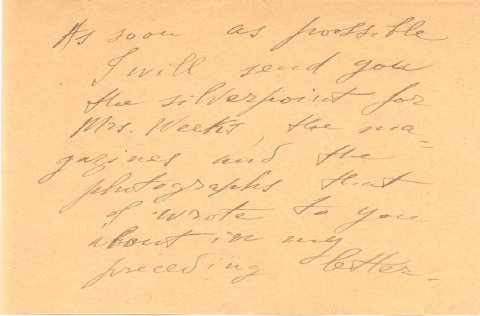 As soon as possible
I will send you
the silverpoint for
Mrs. Weeks, the ma-
gazines and the
photographs that
I wrote to you
about in my
preceding letter.